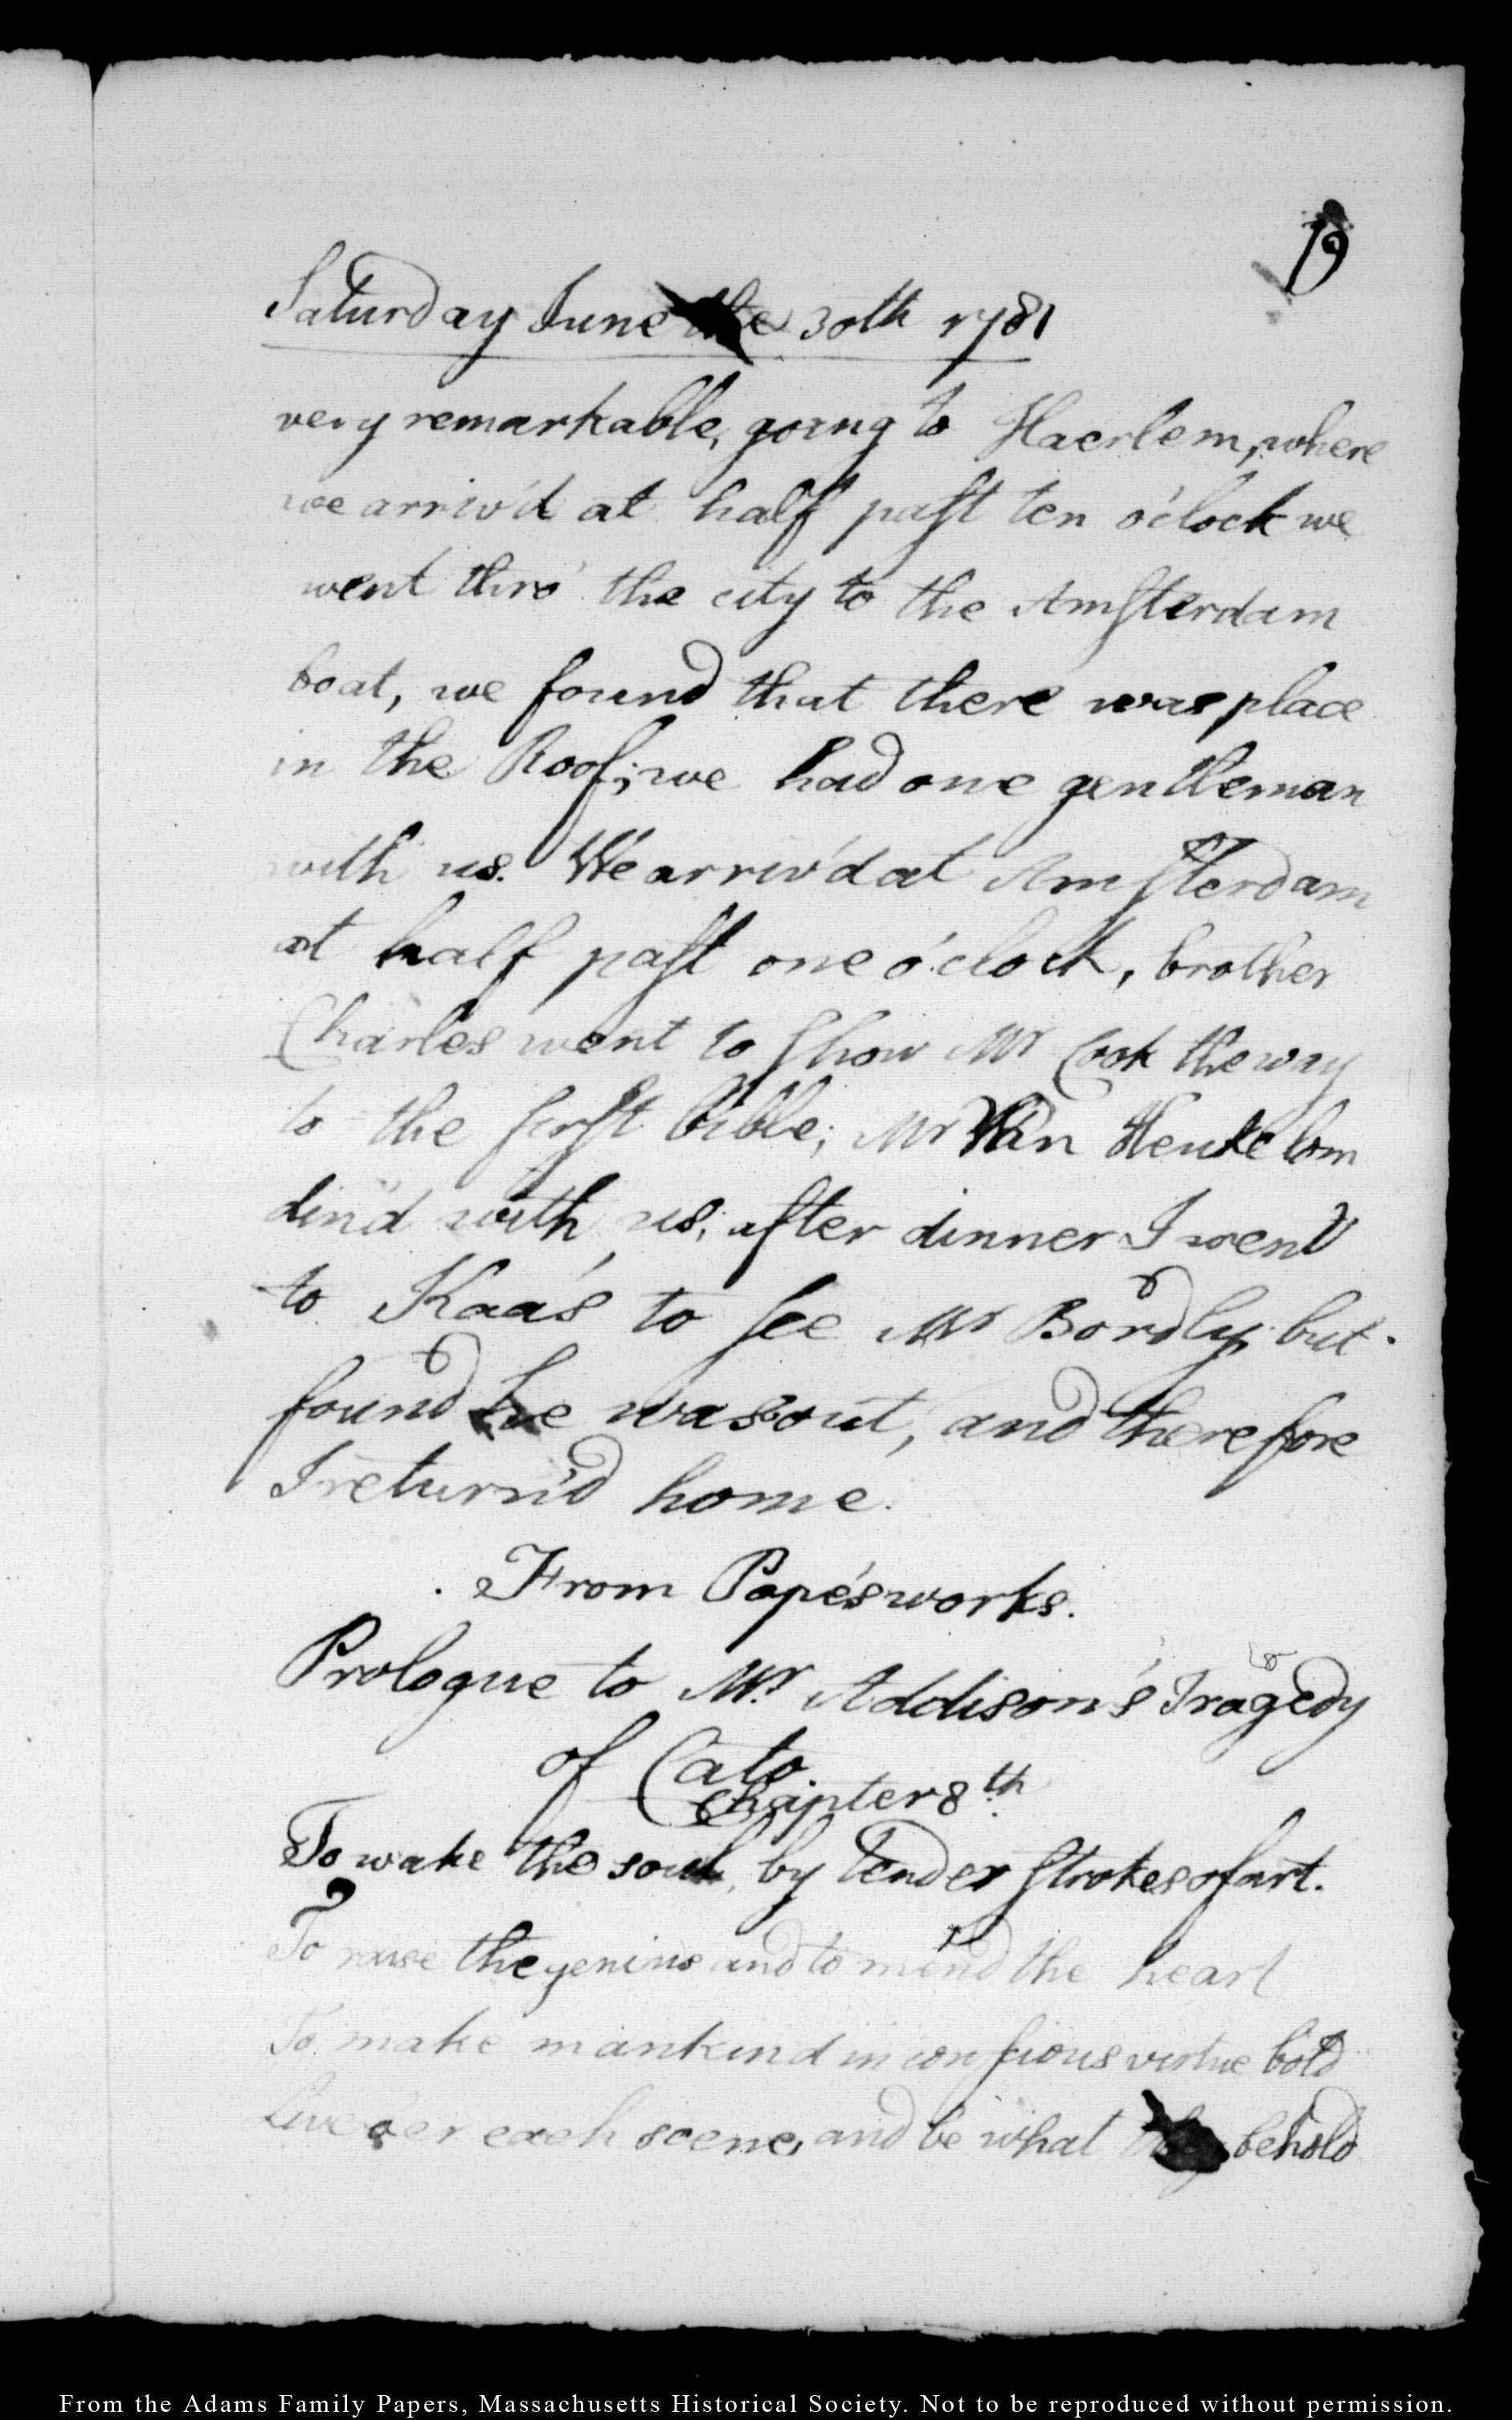 19
Saturday June the 30th 1781
very remarkable, going to Haerlem, where
we arriv'd at half past ten o'clock we
went thro' the city to the Amsterdam
boat, we found that there was place
in the Roof; we had one gentleman
with us. We arriv'd at Amsterdam
at half past one o'clock, brother
Charles went to show Mr Cook the way
to the first bible; Mr Van Heukelom
din'd with us; after dinner I went
to Kaa's to see Mr Bordly but
found he was out, and therefore
I return'd home.
From Pope's works.
Prologue to Mr. Addison's Tragedy
of Cato.
Chapter 8th.
To wake the soul, by tender strokes of art.
To raise the genius and to mend the heart
To make mankind in conscious virtue bold
Live o'er each scene, and be what they behold
From the Adams Family Papers, Massachusetts Historical Society. Not to be reproduced without permission.